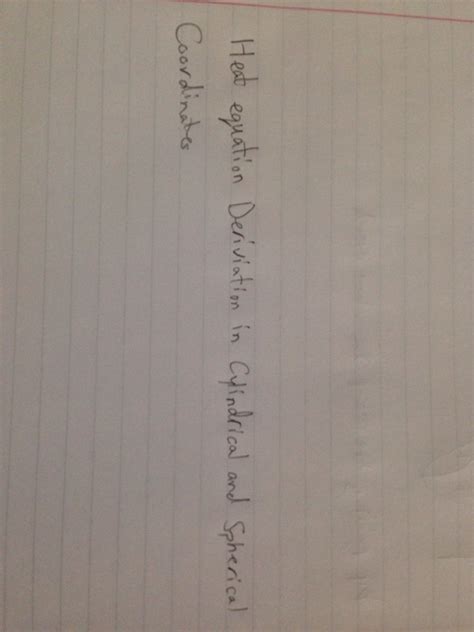 Heat equation Deriviation in Cylindrical and Spherical
Coordinates